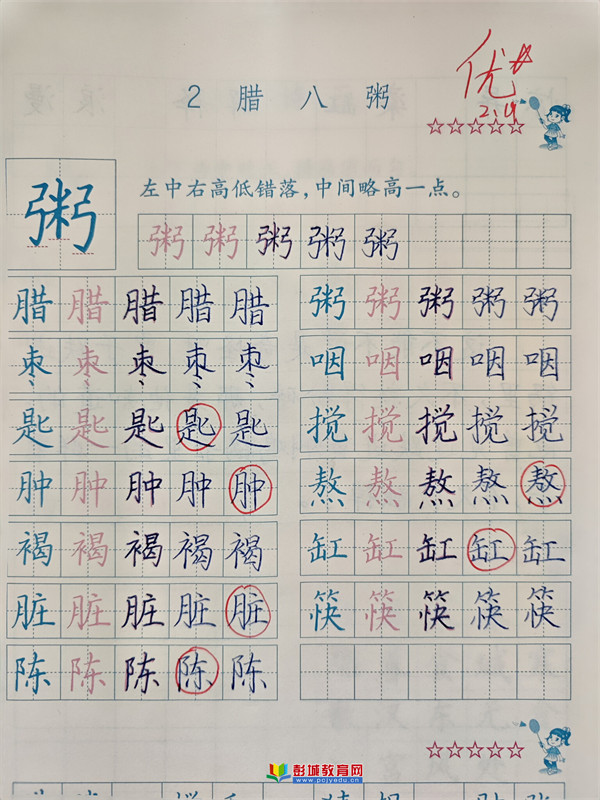 优
2 腊 八 粥
2.19
粥
左中右高低错落，中间略高一点。
粥 粥 粥 粥 粥
腊 腊 腊 腊 腊
粥 粥 粥 粥 粥
枣 枣 枣 枣 枣
咽 咽 咽 咽 咽
匙 匙 匙 匙 匙
搅 搅 搅 搅 搅
肿 肿 肿 肿 肿
熬 熬 熬 熬 熬
褐 褐 褐 褐 褐
缸 缸 缸 缸 缸
脏 脏 脏 脏 脏
筷 筷 筷 筷 筷
陈 陈 陈 陈 陈
彭城教育网
www.pcjyedu.cn